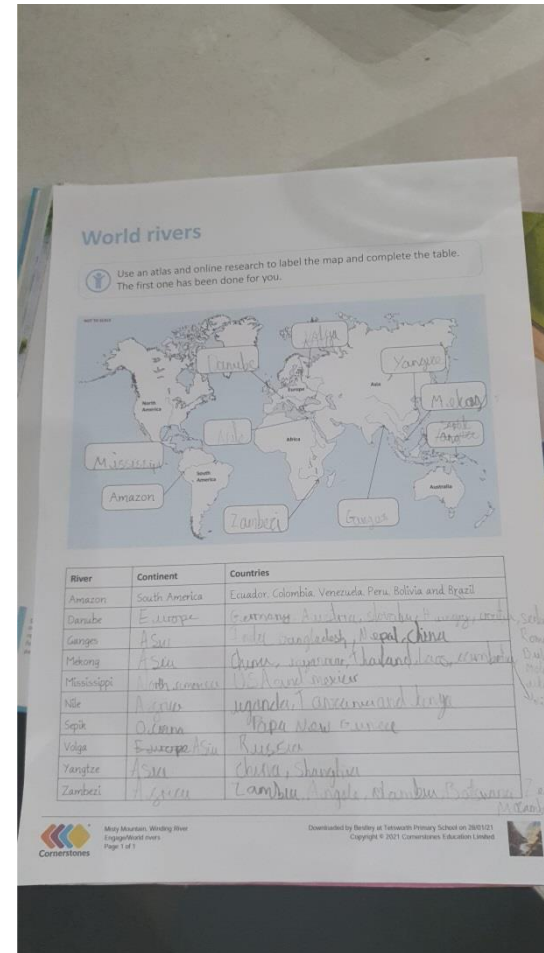 World rivers
Use an atlas and online research to label the map and complete the table.
The first one has been done for you.
NOT TO SCALE
Volga
Danube
Yangtze
Europe
Asia
North
America
Mekong
Nile
Africa
Sepik
Mississipi
South
America
Australia
Amazon
Zambezi
Ganges
River Continent Countries
Amazon South America Ecuador, Colombia, Venezuela, Peru, Bolivia and Brazil
Danube Europe Germany Austria,
Ganges Asia India, Bangladesh, Nepal, China
Mekong Asia China, Thailand, Laos,
Mississippi North America USA and mexico
Nile uganda, Tanzania and kenya
Sepik Papa New Guinea
Volga Europe Asia Russia
Yangtze Asia China, Shanghai
Zambezi Zambia, Angola, Botswana
Cornerstones
Misty Mountain, Winding River
Engage/World rivers
Page 1 of 1
Downloaded by Bentley at Tetsworth Primary School on 28/01/21
Copyright © 2021 Cornerstones Education Limited